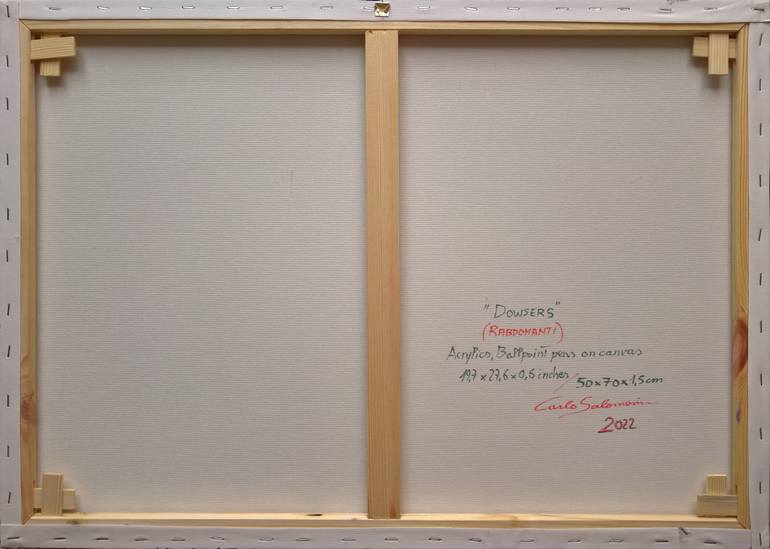 "DOWSERS"
(RABDOMANTI)
Acrylics, Ballpoint pens on canvas
19,7 x 27,6 x 0,6 inches / 50x70x1,5 cm
Carlo Salomoni
2022